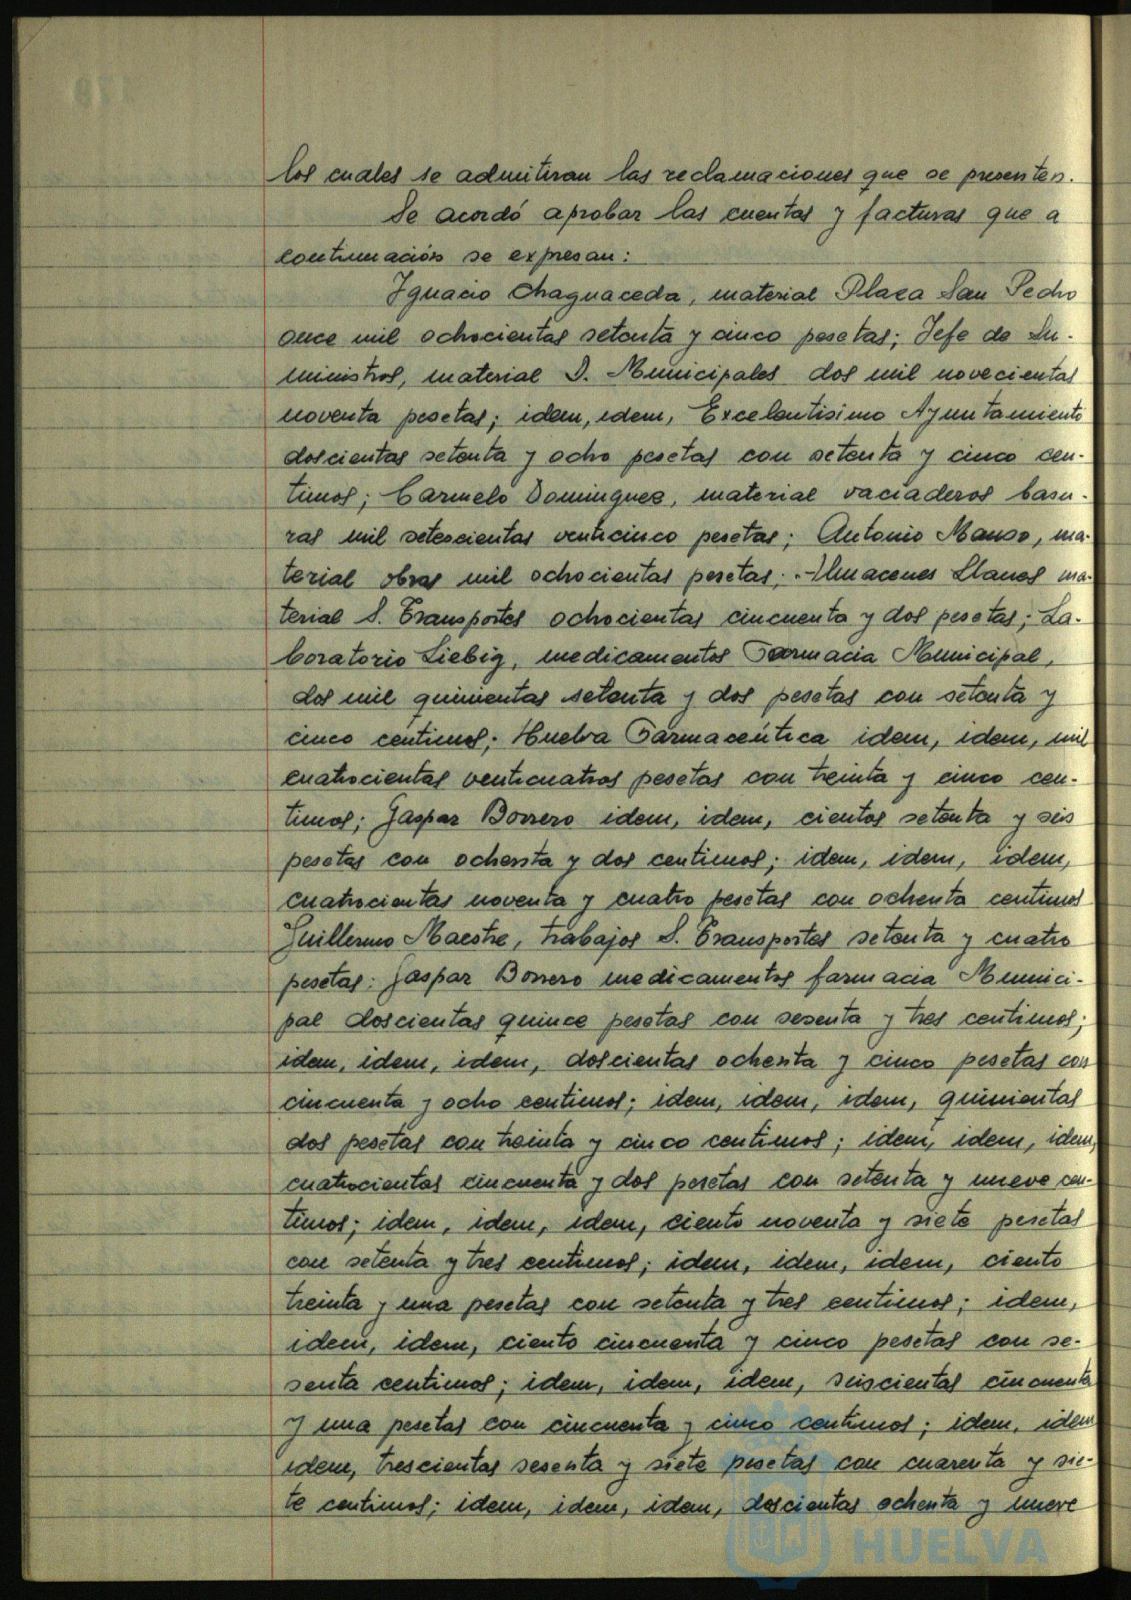 los cuales se admitiran las reclamaciones que se presenten.
Se acordó aprobar las cuentas y facturas que a
continuación se expresan:
Ignacio Chaguaceda, material Plaza San Pedro
once mil ochocientas setenta y cinco pesetas; Jefe de Su-
ministros, material D. Municipales dos mil novecientas
noventa pesetas; idem, idem, Excelentisimo Ayuntamiento
doscientas setenta y ocho pesetas con setenta y cinco cen-
timos; Carmelo Dominguez, material vaciaderos basu-
ras mil setescientas venticinco pesetas; Antonio Manso, ma-
terial obras mil ochocientas pesetas; Almacenes Llanes ma-
terial S. Transportes ochocientas cincuenta y dos pesetas; La-
boratorio Liebig, medicamentos Farmacia Municipal,
dos mil quinientas setenta y dos pesetas con setenta y
cinco céntimos; Huelva Farmaceútica idem, idem, mil
cuatrocientas venticuatros pesetas con treinta y cinco cen-
timos; Gaspar Borrero idem, idem, cientos setenta y seis
pesetas con ochenta y dos centimos; idem, idem, idem,
cuatrocientas noventa y cuatro pesetas con ochenta centimos
Guillermo Maestre, trabajos S. Transportes setenta y cuatro
pesetas: Gaspar Borrero medicamentos farmacia Munici-
pal doscientas quince pesetas con sesenta y tres centimos;
idem, idem, idem, doscientas ochenta y cinco pesetas con
cincuenta y ocho centimos; idem, idem, idem, quinientas
dos pesetas con treinta y cinco centimos; idem, idem, idem,
cuatrocientas cincuenta y dos pesetas con setenta y nueve cen-
timos; idem, idem, idem, ciento noventa y siete pesetas
con setenta y tres centimos; idem, idem, idem, ciento
treinta y una pesetas con setenta y tres centimos; idem,
idem, idem, ciento cincuenta y cinco pesetas con se-
senta centimos; idem, idem, idem, seiscientas cincuenta
y una pesetas con cincuenta y cinco centimos; idem, idem
idem, trescientas sesenta y siete pesetas con cuarenta y sie-
te centimos; idem, idem, idem, doscientas ochenta y nueve
HUELVA